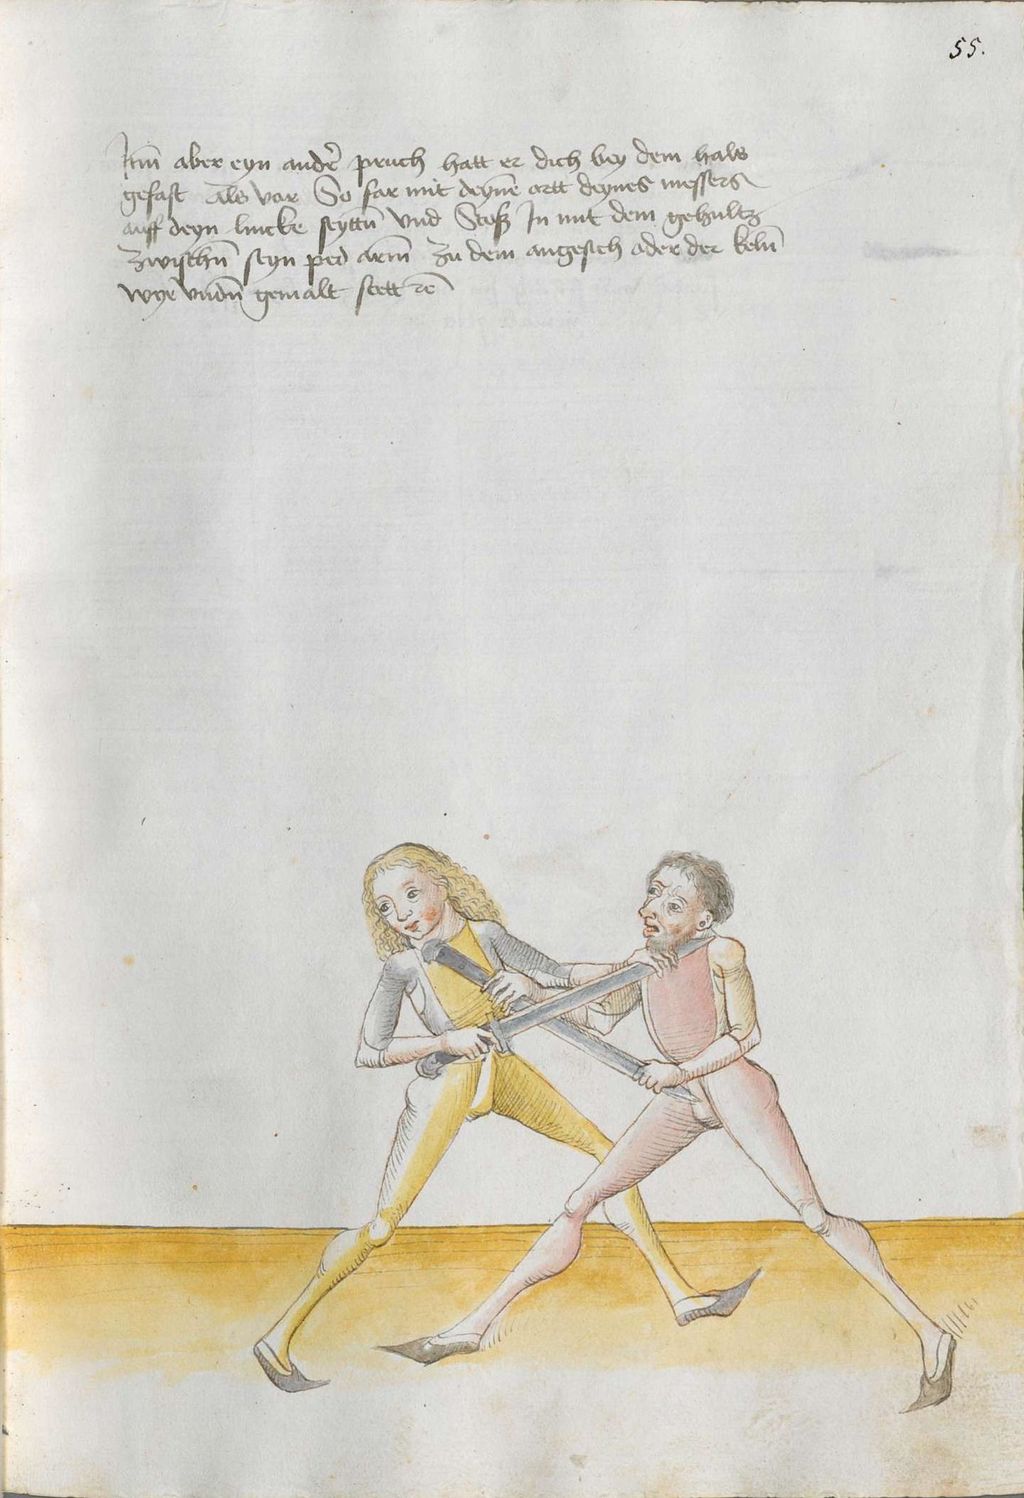 55.
Itm̄ aber eyn andr̄ pruch hatt er dich bey dem hals
gefast Als vor So far mit deynē ortt deynes messers
auff deyn lincke seyttn̄ vnd Stoß In mit dem gehultz
Zwischn̄ seyn ped arm̄ Zu dem angesich oder der keln̄
wye vndn̄ gemalt stett ꝛc̄